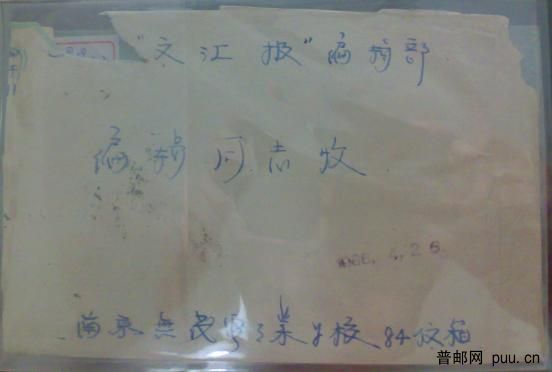 "文汇报"编辑部
编辑同志收
1966.4.26.
南京無线电工業学校84信箱
普邮网 puu.cn